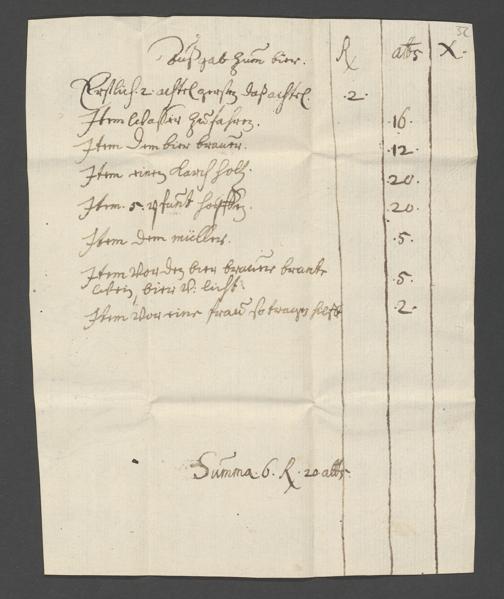 Außgab zum bier. R albs X.
Erstlich 2 achtel gersten daß achtel. 2.
Item Wasser zu fahren. 16.
Item dem bier brauer. 12.
Item einen Karch holtz. 20.
Item 5. pfunt hopffen. 20.
Item dem müller. 5.
Item Vor den bier brauer brante
Wein, bier V. licht 5.
Item Vor eine frau so tragen helft 2.
Summa. 6. R. 20 albs.
56